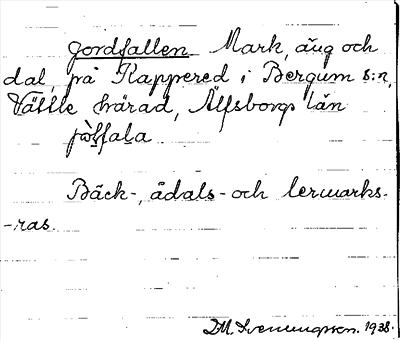 Jordfallen Mark, äng och
dal, på Kappered i Bergum s:n,
Vättle härad, Älfsborgs län
Bäck-, ådals- och lermarks-
-ras.
1938.